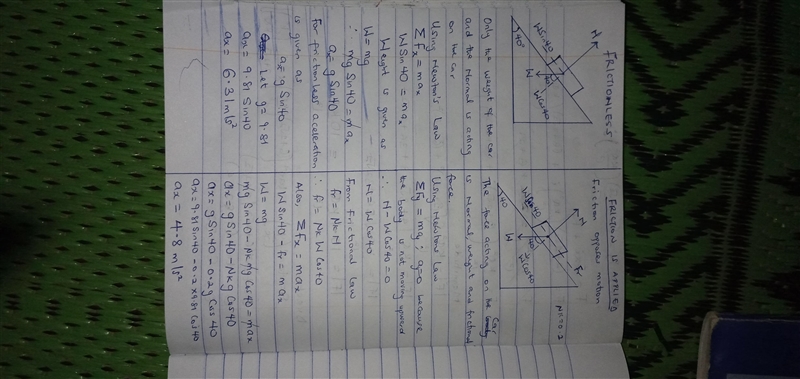 FRICTIONLESS
N
WSin40
40
W
WCos40
40°
Only the weight of the car
and the Normal is acting
on the car
Using Newton's Law
ΣFx = max
WSin40 = max
Weight is given as
W = mg
∴ mg Sin40 = max
ax = g Sin40
For frictionless acceleration
is given as
ax = g Sin40
Let g = 9.81
ax = 9.81 Sin40
ax = 6.31 m/s²
FRICTION IS APPLIED
Friction opposes motion
Nk = 0.2
N
Fr
WSin40
W
WCos40
40
The force acting on the car
is Normal, weight and frictional
force.
Using Newtons Law
ΣFy = mg ; a=0 because
the body is not moving upward
∴ N - WCos40 = 0
N = WCos40
From frictional Law
fr = NkN
∴ fr = Nk W Cos40
Also, ΣFx = max
WSin40 - fr = max
W = mg
mg Sin40 - Nk mg Cos40 = max
ax = g Sin40 - Nk g Cos40
ax = g Sin40 - 0.2 g Cos 40
ax = 9.81 Sin40 - 0.2 x 9.81 Cos40
ax = 4.8 m/s²